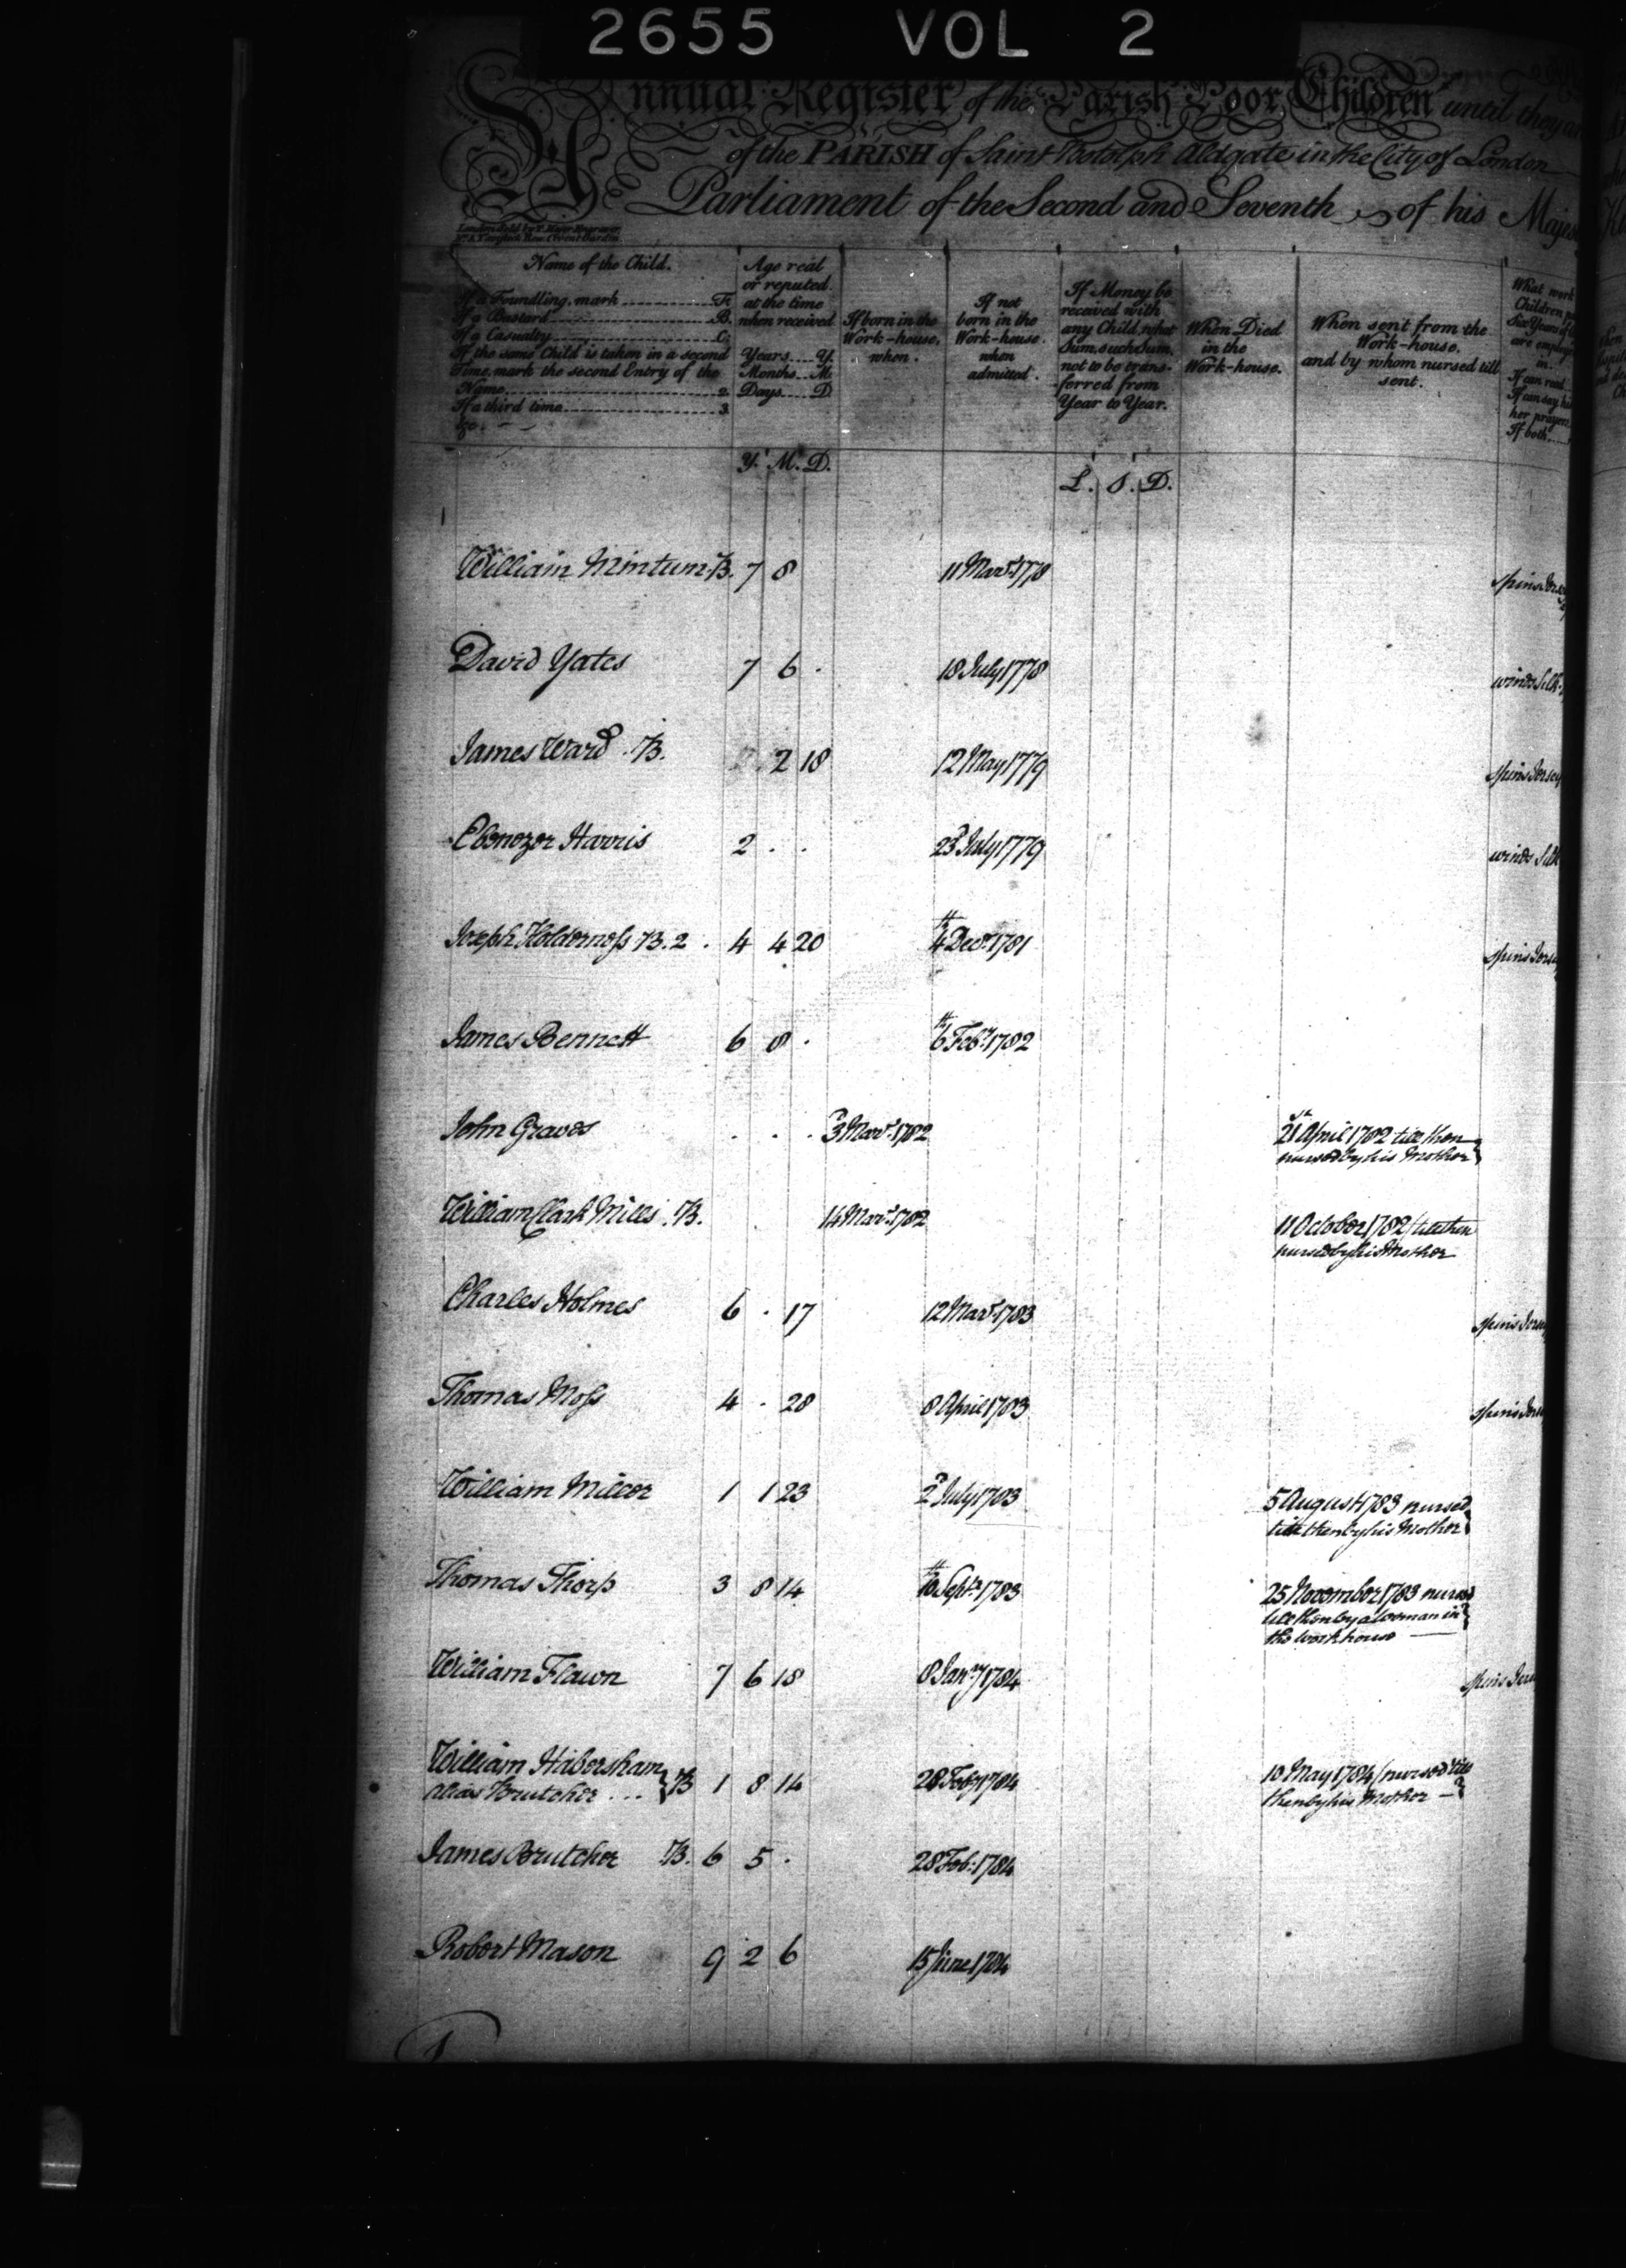 2655 VOL 2
Annual Register of the Parish Poor Children until they
of the PARISH of Saint Botolph Aldgate in the City of London
Parliament of the Second and Seventh of his Majes
Name of the Child.
If a Foundling, mark F.
If a Bastard B.
If a Casualty C.
If the same Child is taken in a second
Time, mark the second Entry of the
Name 2.
If a third time 3.
&c.
Age real
or reputed
at the time
when received
Years Y.
Months M.
Days D.
If born in the
Work-house,
when.
If not
born in the
Work-house.
when
admitted.
If Money be
received with
any Child, what
Sum, such Sum,
not to be trans-
ferred from
Year to Year.
When Died
in the
Work-house.
When sent from the
Work-house.
and by whom nursed till
sent.
What work
Children
Six Years
are employ
in.
If can read
If can say his
her prayers
If both
Y. M. D.
L. S. D.
William Minturn B. 7 8 11 Mar. 1778 spins Jers
David Yates 7 6 . 18 July 1778 winds Silk
James Ward B. 2 18 12 May 1779 spins Jersey
Ebenezer Harris 2 . . 23d July 1779 winds Silk
Joseph Holderness B. 2 . 4 4 20 4th Decr. 1781 spins Jersey
James Bennett 6 8 . 6th Feby. 1782
John Graves . . . 3d Mar. 1782 21st April 1782 till then
nursed by his Mother
William Clark Mills B. 14 Mar. 1782 11 October 1782 / till then
nursed by his Mother
Charles Holmes 6 . 17 12 Mar. 1783 spins Jersey
Thomas Moss 4 . 28 8 April 1783 spins Jers
William Miller 1 1 23 2d July 1783 5 August 1783 nursed
till then by his Mother
Thomas Thorp 3 8 14 10th Septr. 1783 25 November 1783 nursed
till then by a Woman in
the workhouse
William Flawn 7 6 18 8 Jany 1784 spins Jers
William Habersham
alias Brutcher ... B 1 8 14 28 Feby 1784 10 May 1784 / nursed till
then by his Mother
James Brutcher B. 6 5 . 28 Feb: 1784
Robert Mason 9 2 6 15 June 1784